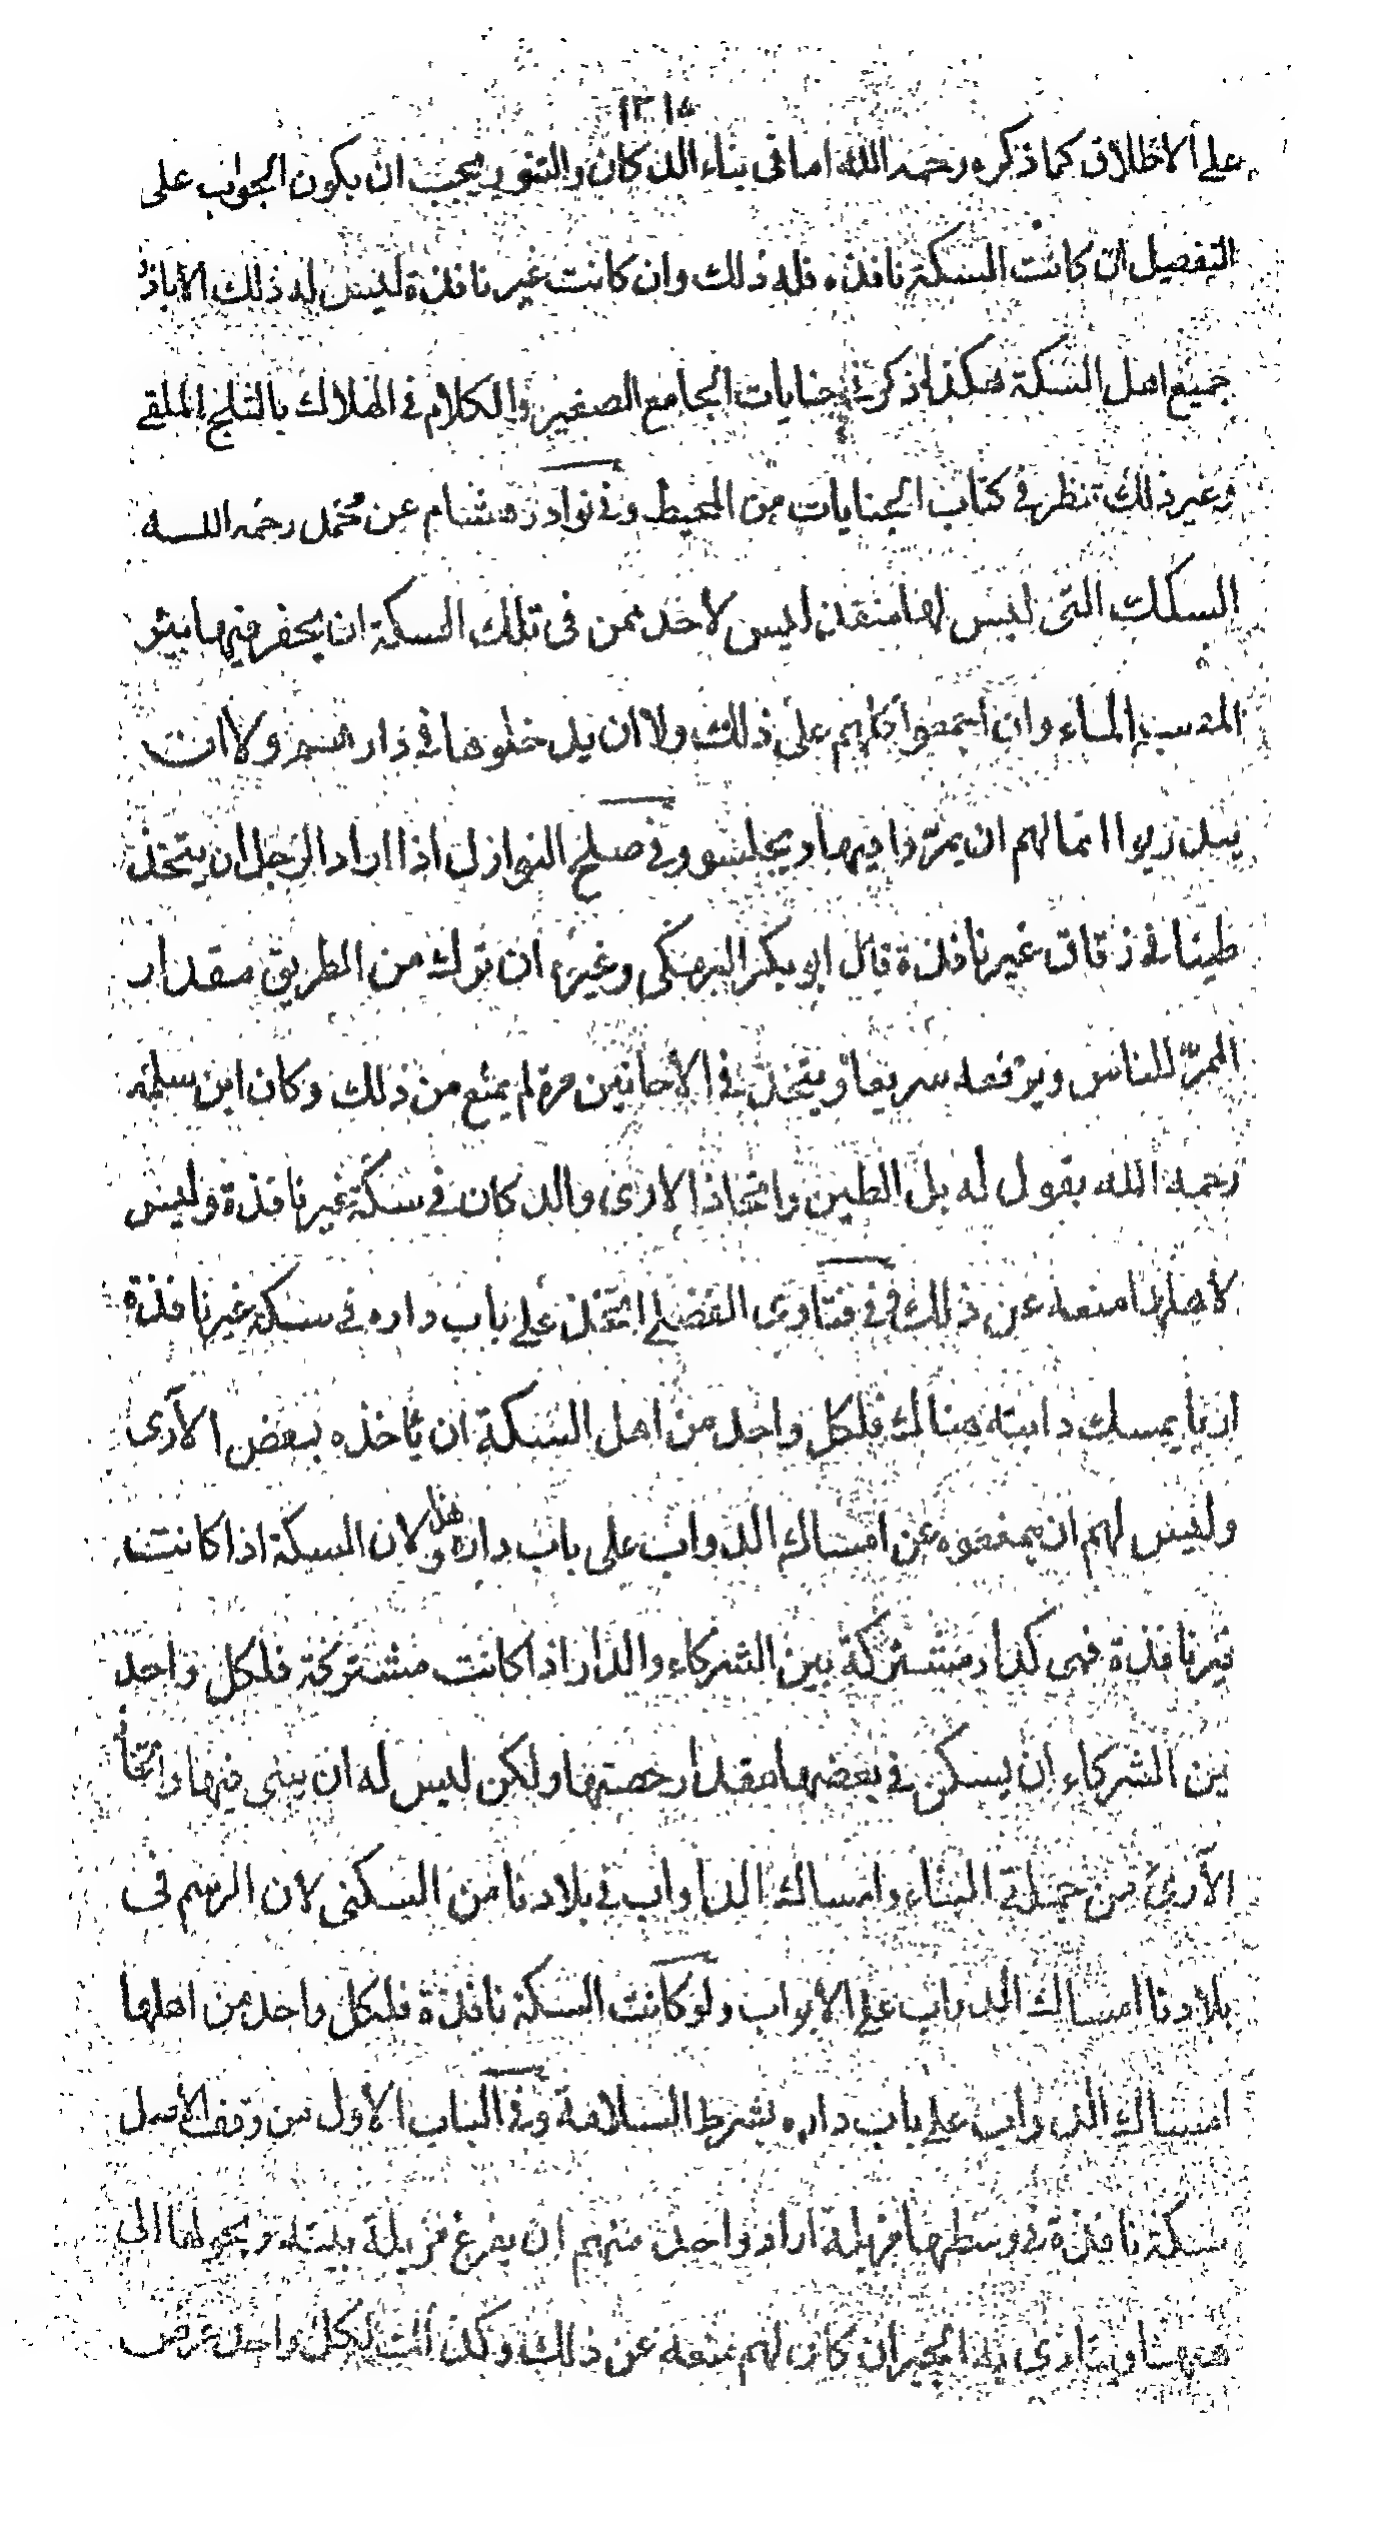 ١٣١٥
على الاطلاق كما ذكره رحمه الله اما فى بناء الدكان والتنور يجب ان يكون الجواب على
التفصيل ان كانت السكة نافذه فله ذلك وان كانت غير نافذة ليس له ذلك الا باذ
جميع اهل السكة هكذا ذكر فى جنايات الجامع الصغير والكلام فى الهلاك بالثلج الملقى
وغير ذلك تنظر فى كتاب الجنايات من المحيط وفى نوادر هشام عن محمد رحمه الله
السكك التى ليس لها منفذ ليس لاحد ممن فى تلك السكة ان يحفر فيها بئر
الماء وان اجتمعوا كلهم على ذلك ولا ان يدخلوها فى دارهم ولا ان
انما لهم ان يمروا فيها ويجلسوا وفى صلح النوازل اذا اراد الرجل ان يتخذ
طينا فى زقاق غير نافذة قال ابو بكر وغيره ان ترك من الطريق مقدار
الممر للناس ويرفعه سريعا ويتخذ فى الاحانين مرة لم يمنع من ذلك وكان ابن سلمة
رحمه الله يقول له بل الطين واتخاذ الارى والدكان فى سكة غير نافذة وليس
لاهلها منعه عن ذلك فى فتاوى الفضلى اتخذ على باب داره فى سكة غير نافذة
اريا يمسك دابته هنالك فلكل واحد من اهل السكة ان ياخذه بنقض الآرى
وليس لهم ان يمنعوه عن امساك الدواب على باب داره هذا لان السكة اذا كانت
غير نافذة فهى كدار مشتركة بين الشركاء والدار اذا كانت مشتركة فلكل واحد
من الشركاء ان يسكن فى بعضها مقدار حصتها ولكن ليس له ان يبنى فيها واتخا
الآرى من جملة البناء وامساك الدواب فى بلادنا من السكنى لان الرسم فى
بلادنا امساك الدواب على الابواب ولو كانت السكة نافذة فلكل واحد من اهلها
امساك الدواب على باب داره بشرط السلامة وفى الباب الاول من وقف الاصل
سكة نافذة فى وسطها مزبلة اراد واحد منهم ان يفرغ مزبلة بيته ويحولها الى
ههنا ويتأذى به الجيران كان لهم منعه عن ذلك وكذلك لكل واحد عرض